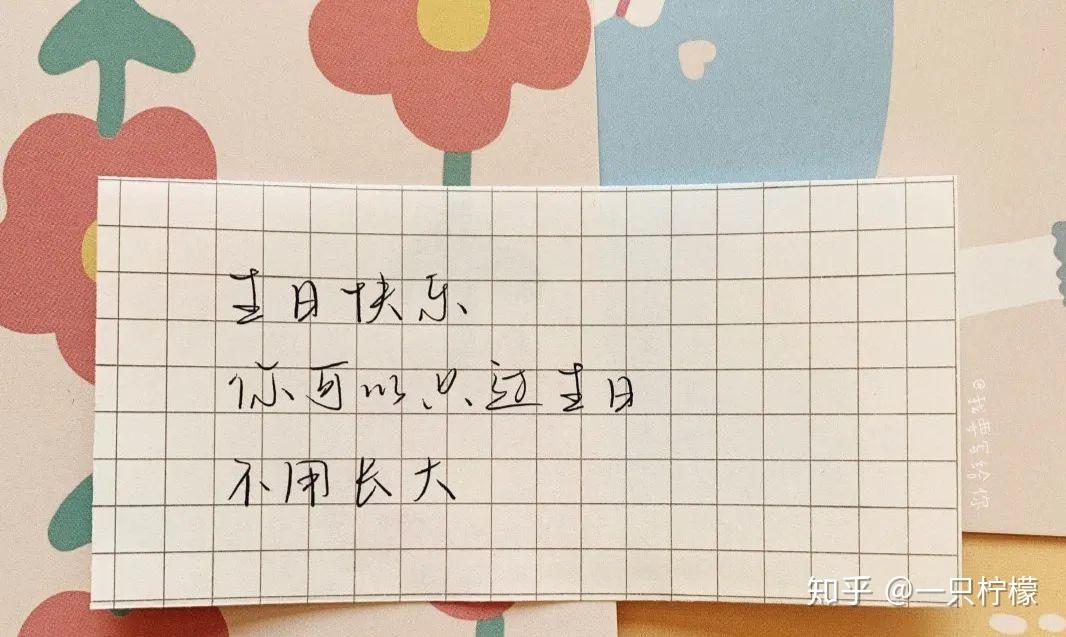 生日快乐
你可以只过生日
不用长大
@我要写给你
知乎 @一只柠檬